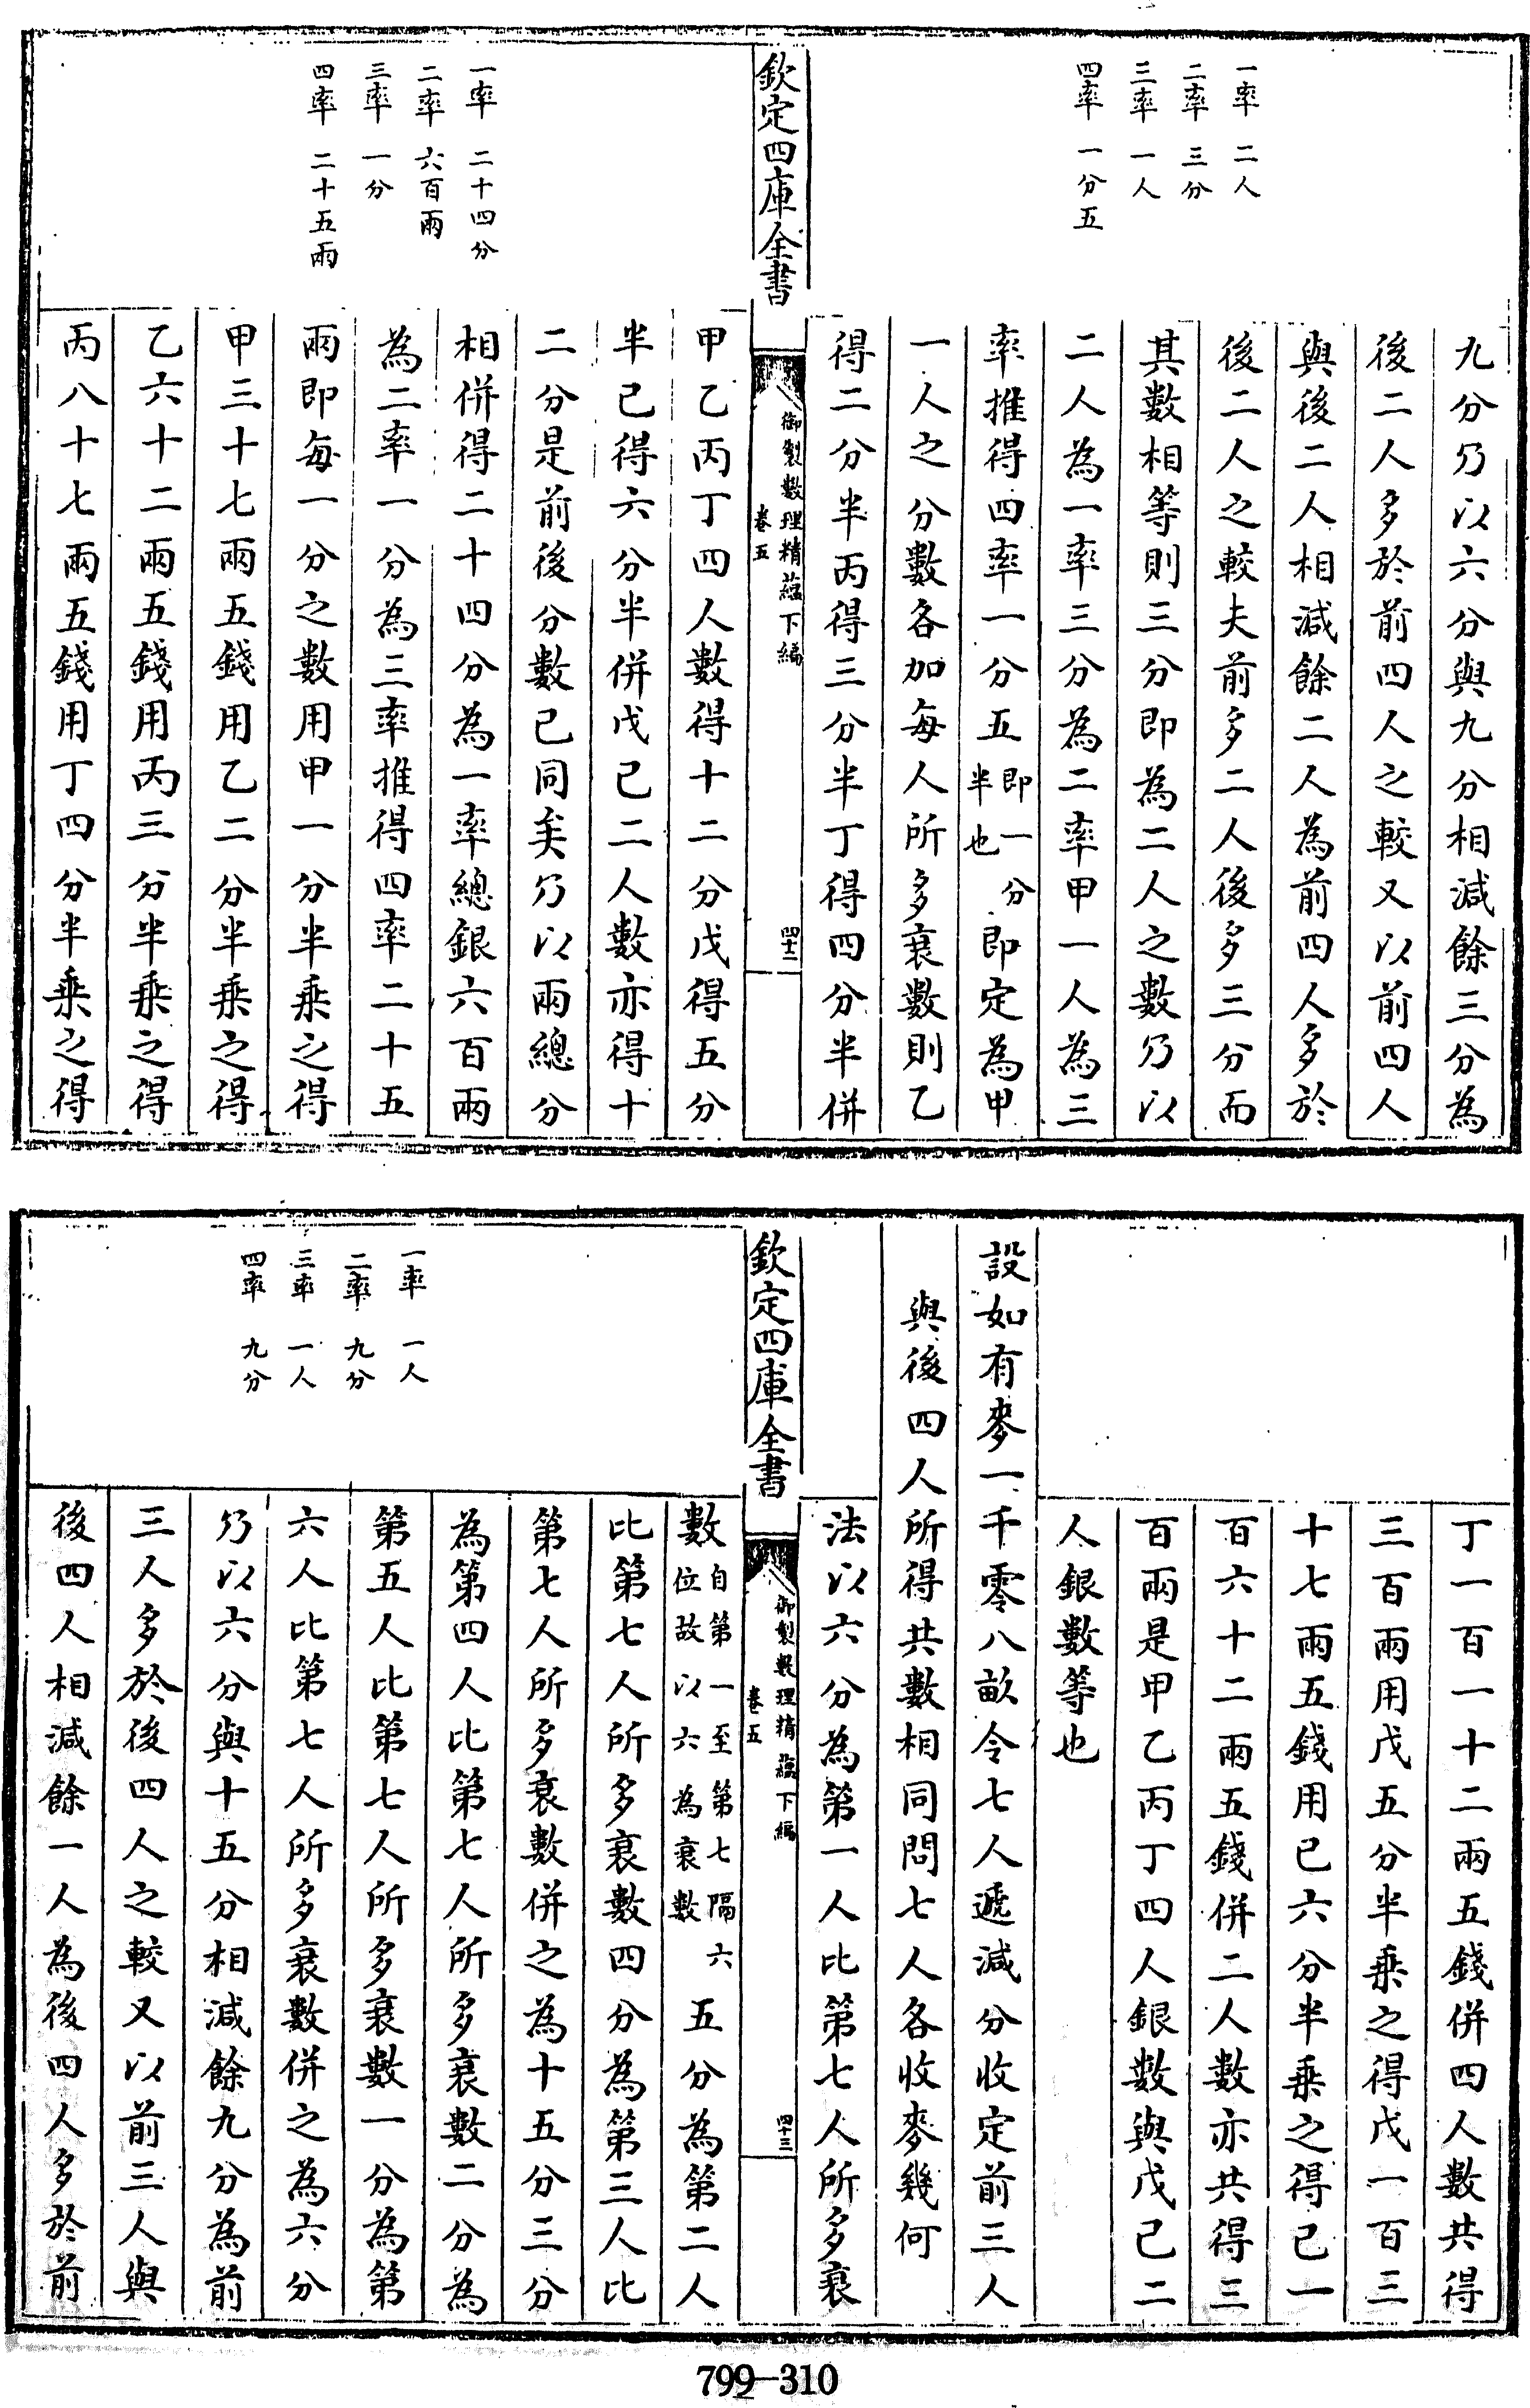 一率　二人
二率　三分
三率　一人
四率　一分五
九分乃以六分與九分相減餘三分為
後二人多於前四人之較又以前四人
與後二人相減餘二人為前四人多於
後二人之較夫前多二人後多三分而
其數相等則三分即為二人之數乃以
二人為一率三分為二率甲一人為三
率推得四率一分五即一分半也即定為甲
一人之分數各加每人所多衰數則乙
得二分半丙得三分半丁得四分半併
欽定四庫全書
御製數理精蘊下編
卷五
四十二
一率　二十四分
二率　六百兩
三率　一分
四率　二十五兩
甲乙丙丁四人數得十二分戊得五分
半已得六分半併戊已二人數亦得十
二分是前後分數已同矣乃以兩總分
相併得二十四分為一率總銀六百兩
為二率一分為三率推得四率二十五
兩即每一分之數用甲一分半乗之得
甲三十七兩五錢用乙二分半乗之得
乙六十二兩五錢用丙三分半乗之得
丙八十七兩五錢用丁四分半乗之得
丁一百一十二兩五錢併四人數共得
三百兩用戊五分半乗之得戊一百三
十七兩五錢用已六分半乗之得已一
百六十二兩五錢併二人數亦共得三
百兩是甲乙丙丁四人銀數與戊已二
人銀數等也
設如有麥一千零八畝令七人遞減分收定前三人
與後四人所得共數相同問七人各收麥幾何
法以六分為第一人比第七人所多衰
欽定四庫全書
御製數理精蘊下編
卷五
四十三
一率　一人
二率　九分
三率　一人
四率　九分
數自第一至第七隔六位故以六為衰數五分為第二人
比第七人所多衰數四分為第三人比
第七人所多衰數併之為十五分三分
為第四人比第七人所多衰數二分為
第五人比第七人所多衰數一分為第
六人比第七人所多衰數併之為六分
乃以六分與十五分相減餘九分為前
三人多於後四人之較又以前三人與
後四人相減餘一人為後四人多於前
799-310